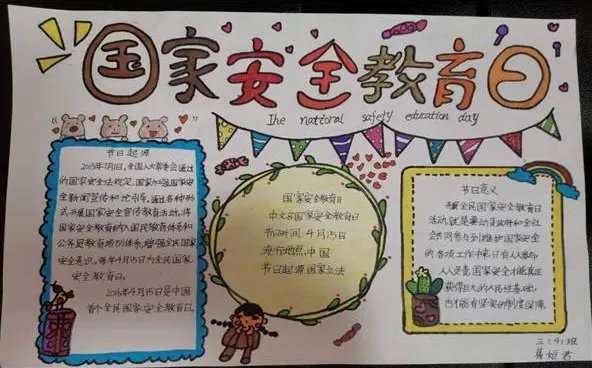 国家安全教育日
The national safety education day
节日起源
2015年7月1日,全国人大常委会通过
的国家安全法规定,国家加强国家安
全新闻宣传和舆论引导,通过多种形
式开展国家安全宣传教育活动,将
国家安全教育纳入国民教育体系和
公务员教育培训体系,增强全民国家
安全意识。每年4月15日为全民国家
安全教育日。
2016年4月15日是中国
首个全民国家安全教育日。
国家安全教育日
中文名国家安全教育日
节日时间:4月15日
流行地点:中国
节日起源:国家立法
节日意义
开展全民国家安全教育日
活动,就是要动员政府和全社
会共同参与到维护国家安全
的各项工作中来,只有人人参与
人人负责,国家安全才能真正
获得巨大的人民性基础,
也才能有坚实的制度保障。
三(4)班